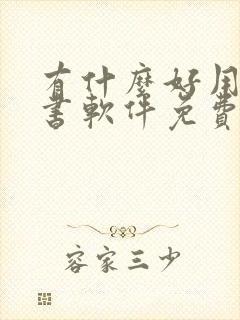 有什麼好用
書軟件免費
容家三少